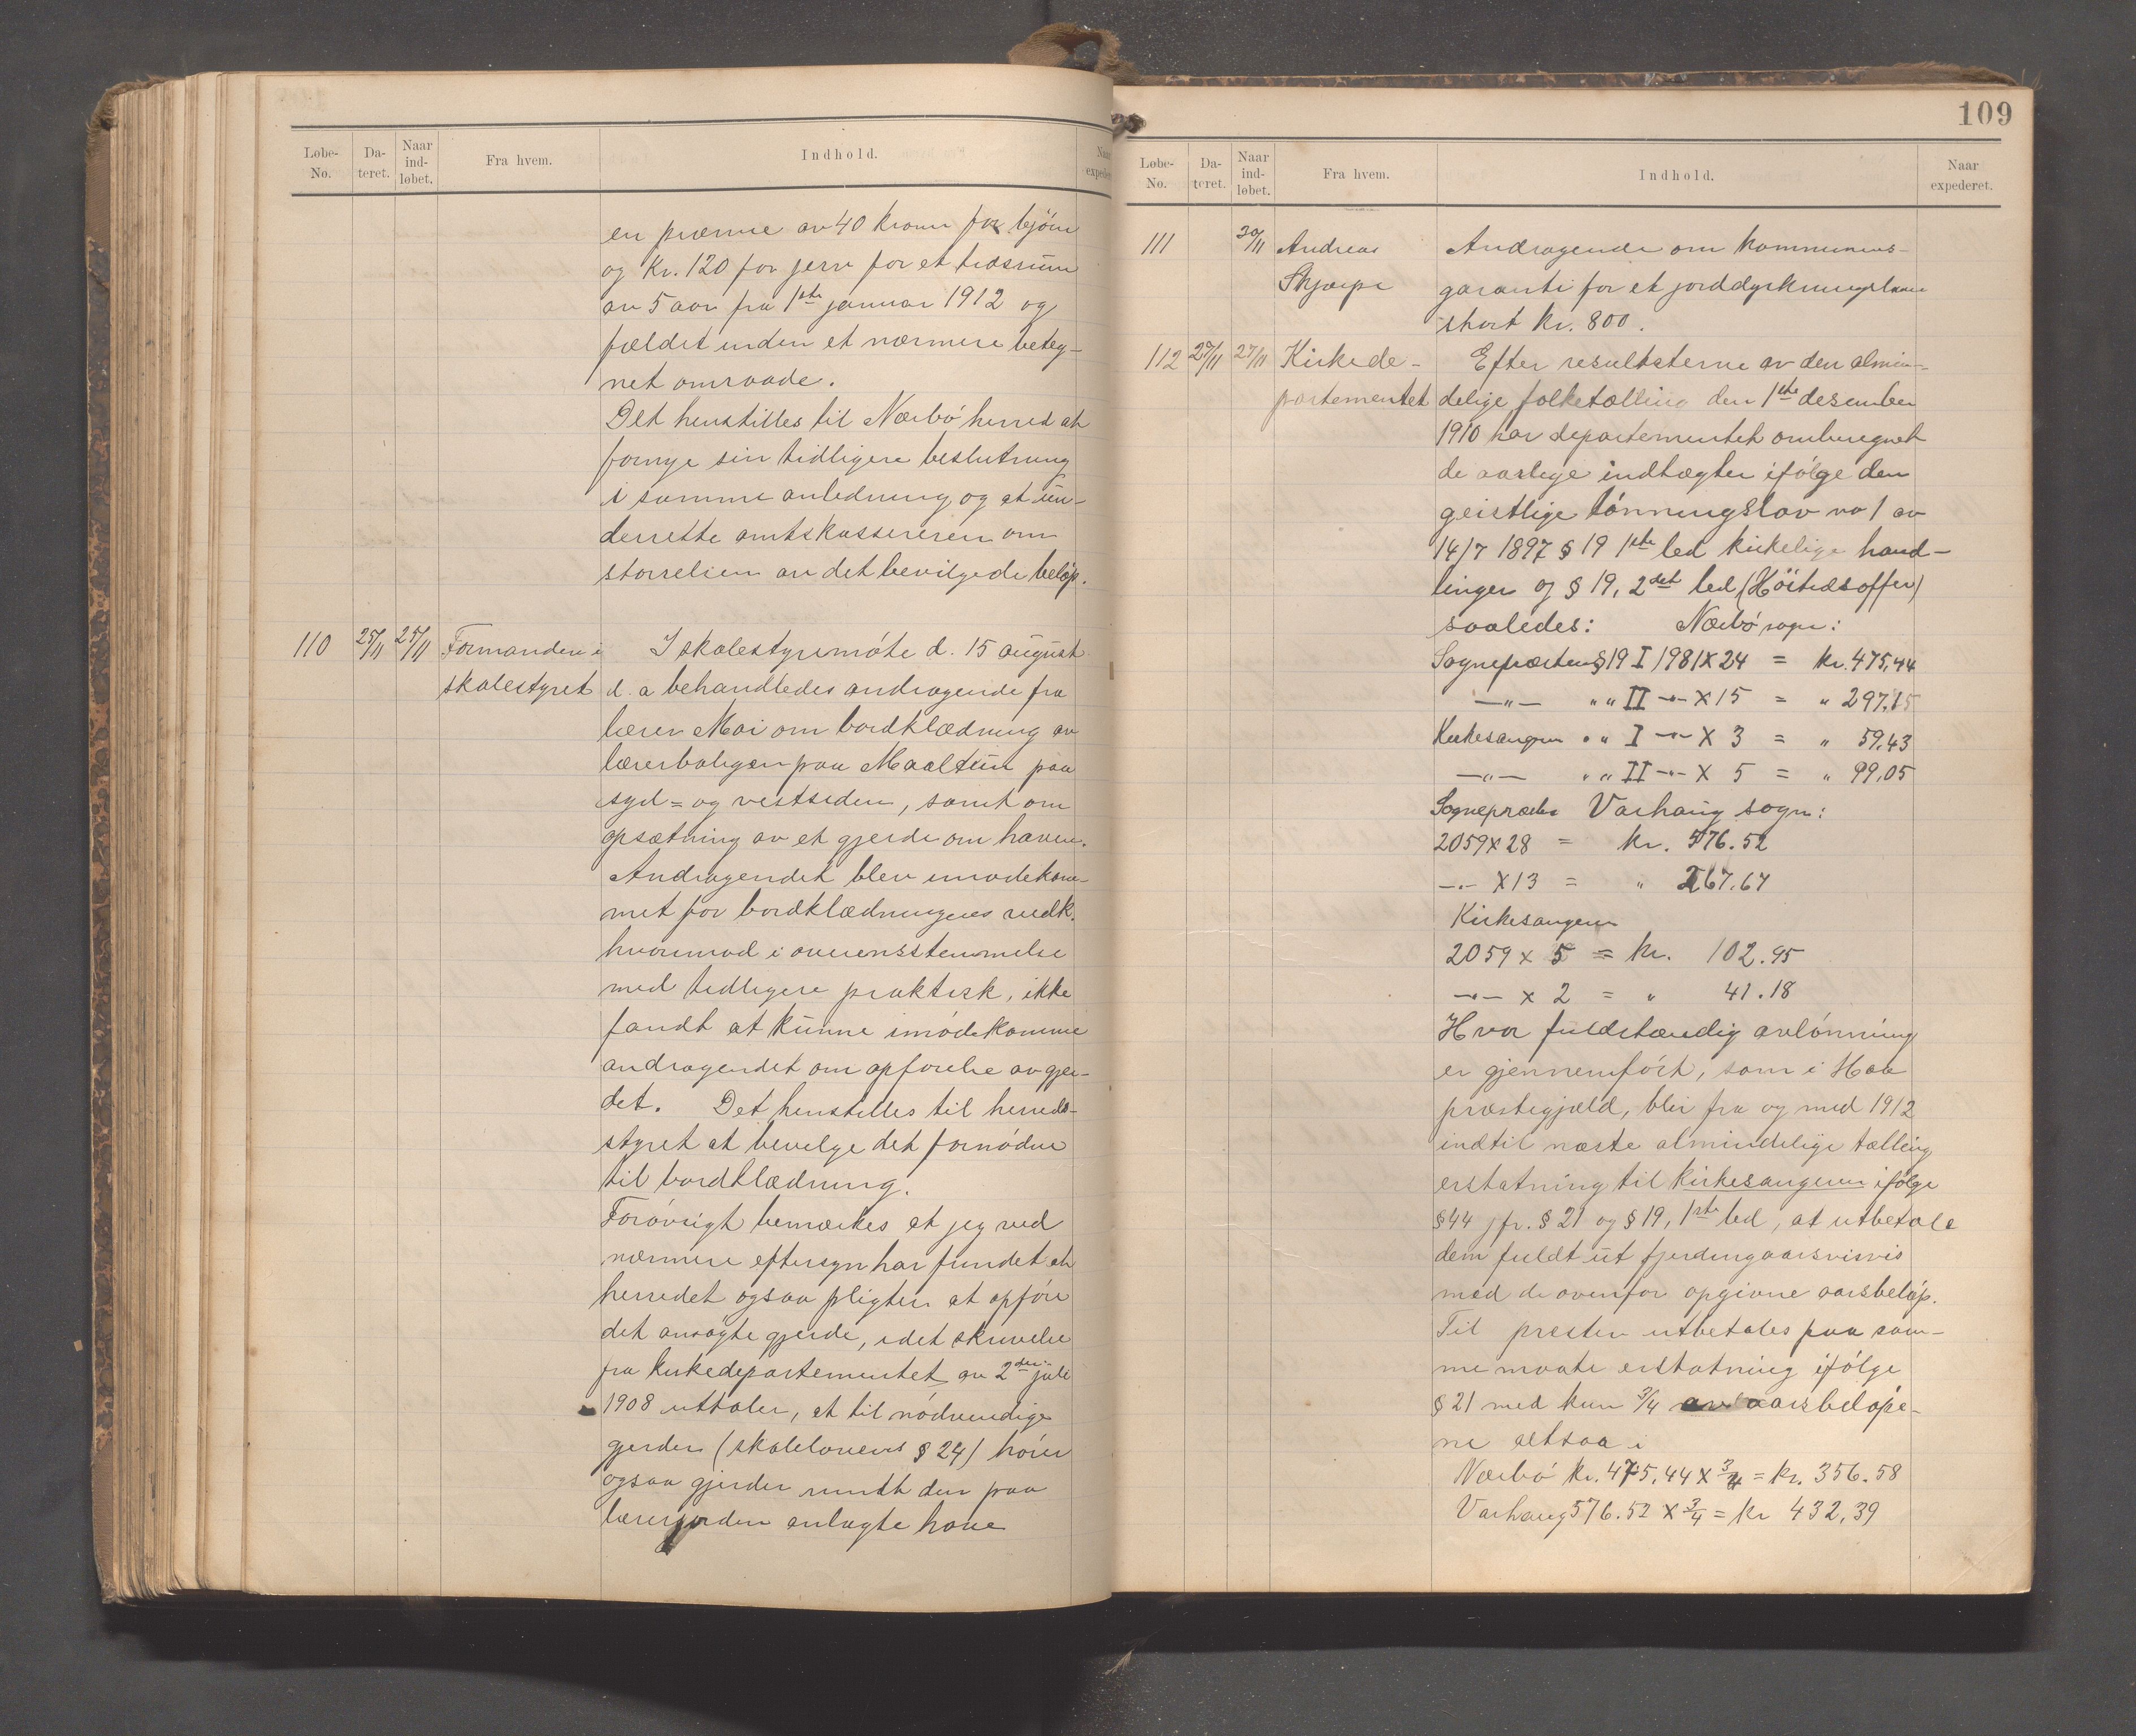 Løbe-No. Da-teret. Naar ind-løbet. Fra hvem. Indhold. Naar expederet.
en præmie av 40 kroner for bjørn
og Kr. 120 for jerv for et tidsrum
av 5 aar fra 1ste januar 1912 og
fældet inden et nærmere beteg-
net omraade.
Det henstilles til Nærbø herred at
fornye sin tidligere beslutning
i samme anledning og at un-
derrette amtskassereren om
størrelsen av det bevilgede beløp.
110 25/11 25/11 Formanden i I skolestyremøte d. 15 august
skolestyret d. a behandledes andragende fra
lærer Moi om bordklædning av
lærerboligen paa Maaltun paa
syd= og vestsiden, samt om
opsætning av et gjerde om haven.
Andragendet blev imødekom-
met for bordklædningens vedk.
hvorimod i overensstemmelse
med tidligere praktisk, ikke
fandt at kunne imødekomme
andragendet om opførelse av gjer-
det. Det henstilles til herreds-
styret at bevilge det fornødne
til bordklædning.
Forøvrigt bemærkes at jeg ved
nærmere eftersyn har fundet at
herredet ogsaa pligter at opføre
det ansøgte gjerde, idet skrivelse
fra kirkedepartementet av 2den juli
1908 uttaler, at til nødvendige
gjerder (skolelovens § 24) hører
ogsaa gjerder rundt den paa
lærerjorden anlagte have
109
Løbe-No. Da-teret. Naar ind-løbet. Fra hvem. Indhold. Naar expederet.
111 30/11 Andreas Andragende om kommunens-
Skjærpe garanti for et jorddyrkningslaan
stort kr. 800.
112 27/11 27/11 Kirkede- Efter resultaterne av den almin-
partementet delige folketælling den 1ste desember
1910 har departementet omberegnet
de aarlige indtægter ifølge den
geistlige lønningslov no 1 av
14/7 1897 § 19 1ste led kirkelige hand-
linger og § 19, 2det led (Høitidsoffer)
saaledes: Nærbø sogn:
Sognepræsten § 19 I 1981 X 24 = kr. 475,44
—"— " " II —"— X 15 = " 297,15
Kirkesangeren " " I —"— X 3 = " 59,43
—"— " " II —"— X 5 = " 99,05
Sognepræsten Varhaug sogn:
2059 x 28 = kr. 576.52
—"— X 13 = " 267.67
Kirkesangeren
2059 x 5 = kr. 102.95
—"— x 2 = " 41.18
Hvor fuldstændig avlønning
er gjennemført, som i Haa
præstegjæld, blir fra og med 1912
indtil næste almindelige tælling
erstatning til kirkesangeren ifølge
§ 44 jfr. § 21 og § 19, 1ste led, at utbetale
dem fuldt ut fjerdingaarsvisvis
med de ovenfor opgivne aarsbeløp.
Til presten utbetales paa sam-
me maate erstatning ifølge
§ 21 med kun 3/4 av aarsbeløpe-
ne altsaa i
Nærbø kr. 475,44 x 3/4 = kr. 356.58
Varhaug 576.52 x 3/4 = kr 432,39